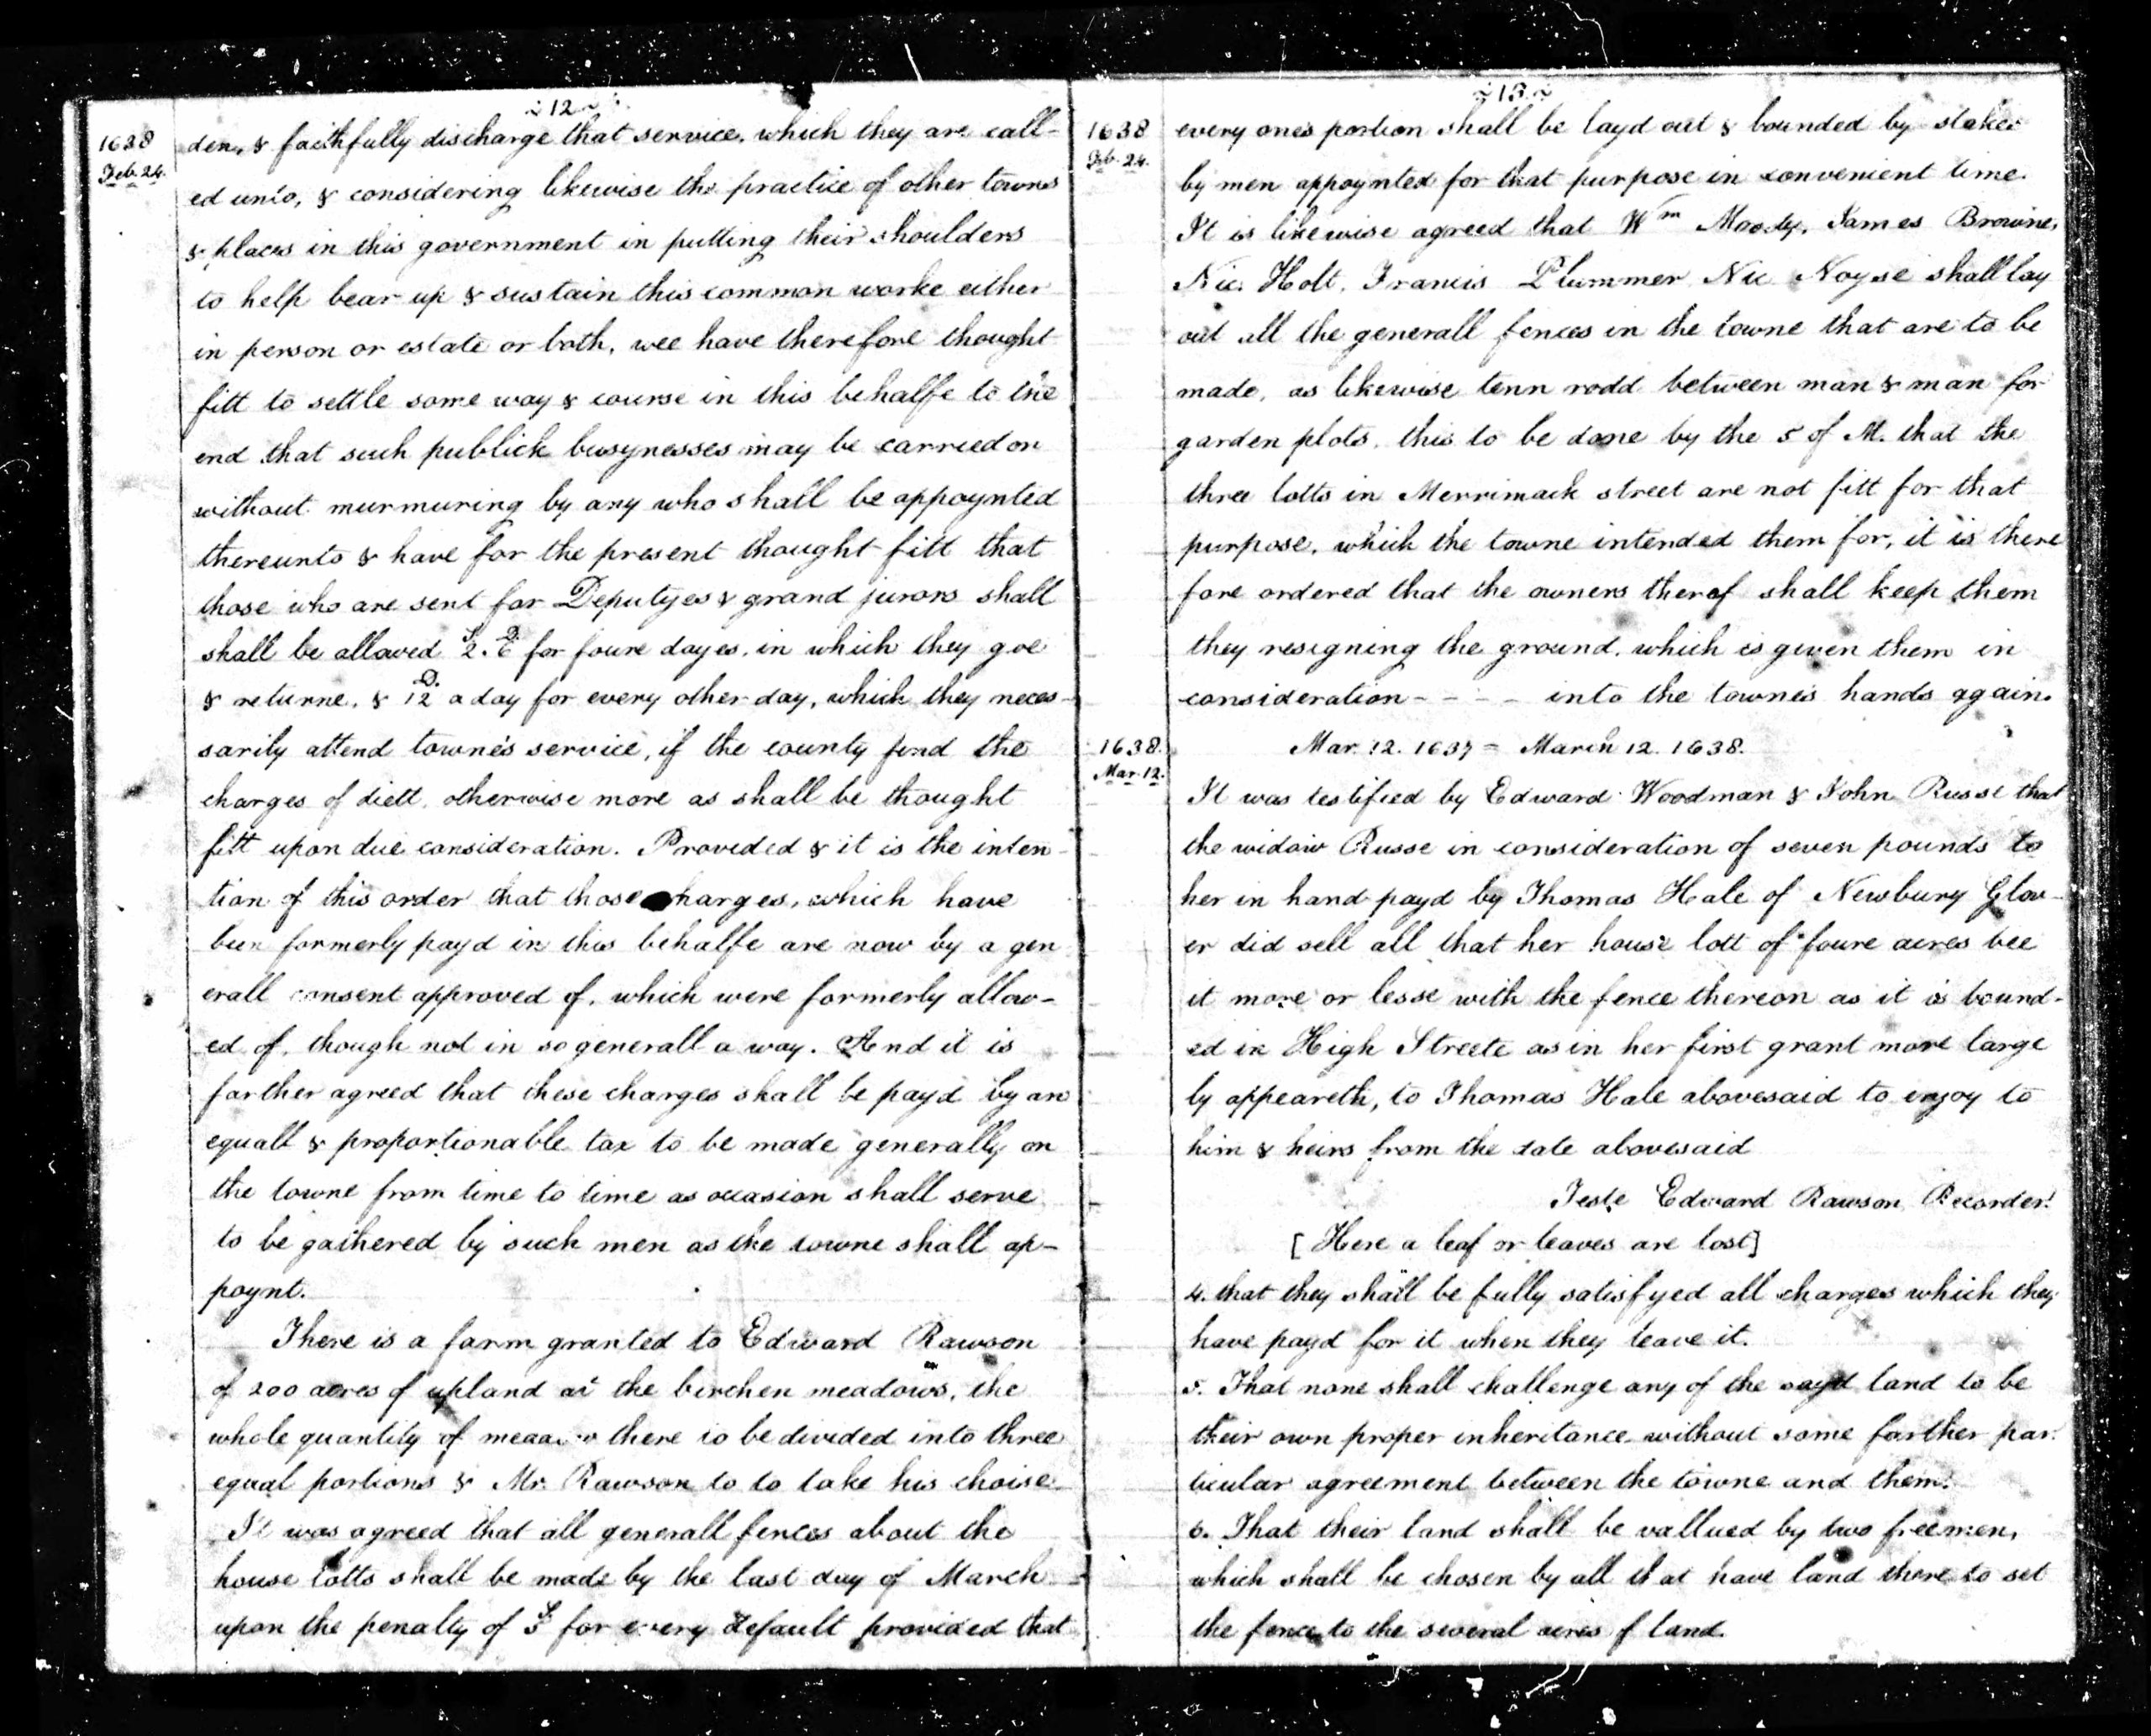 ~ 12 ~
1638
Feb. 24.
den, & faithfully discharge that service, which they are call-
ed unto, & considering likewise the practice of other towns
& places in this government in putting their shoulders
to help bear up & sustain this common worke either
in person or estate or both, wee have therefore thought
fitt to settle some way & course in this behalfe to the
end that such publick busynesses may be carried on
without murmuring by any who shall be appoynted
thereunto & have for the present thought fitt that
those who are sent for Deputyes & grand jurors shall
shall be allowed 2.S 6.D for foure dayes, in which they goe
& returne, & 12 D. a day for every other day, which they neces-
sarily attend towne's service, if the county find the
charges of diett, otherwise more as shall be thought
fitt upon due consideration. Provided & it is the inten-
tion of this order that those charges, which have
been formerly payd in this behalfe are now by a gen
erall consent approved of, which were formerly allow-
ed of, though not in so generall a way. And it is
farther agreed that these charges shall be payd by an
equall & proportionable tax to be made generally on
the towne from time to time as occasion shall serve
to be gathered by such men as the towne shall ap-
poynt.
There is a farm granted to Edward Rawson
of 200 acres of upland at the birchen meadows, the
whole quantity of meadow there to be divided into three
equal portions & Mr. Rawson to to take his choise
It was agreed that all generall fences about the
house lotts shall be made by the last day of March
upon the penalty of 5 S for every default provided that
~ 13 ~
1638
Feb. 24.
every one's portion shall be layd out & bounded by stakes
by men appoynted for that purpose in convenient time.
It is likewise agreed that Wm Moody, James Browne,
Nic. Holt, Francis Plummer Nic Noyse shall lay
out all the generall fences in the towne that are to be
made, as likewise tenn rodd between man & man for
garden plots, this to be done by the 5 of M. that the
three lotts in Merrimack street are not fitt for that
purpose, which the towne intended them for, it is there
fore ordered that the owners therof shall keep them
they resigning the ground, which is given them in
consideration - - - - into the towne's hands again.
1638.
Mar. 12.
Mar. 12. 1637 = March 12. 1638.
It was testified by Edward Woodman & John Russe that
the widow Russe in consideration of seven pounds to
her in hand payd by Thomas Hale of Newbury Glov-
er did sell all that her house lott of foure acres bee
it more or lesse with the fence thereon as it is bound-
ed in High Streete as in her first grant more large
ly appeareth, to Thomas Hale abovesaid to enjoy to
him & heirs from the date abovesaid
Teste Edward Rawson Recorder.
[Here a leaf or leaves are lost]
4. that they shall be fully satisfyed all charges which they
have payd for it when they leave it.
5. That none shall challenge any of the sayd land to be
their own proper inheritance without some farther par-
ticular agreement between the towne and them.
6. That their land shall be vallued by two freemen,
which shall be chosen by all that have land there to set
the fence to the several acres of land.